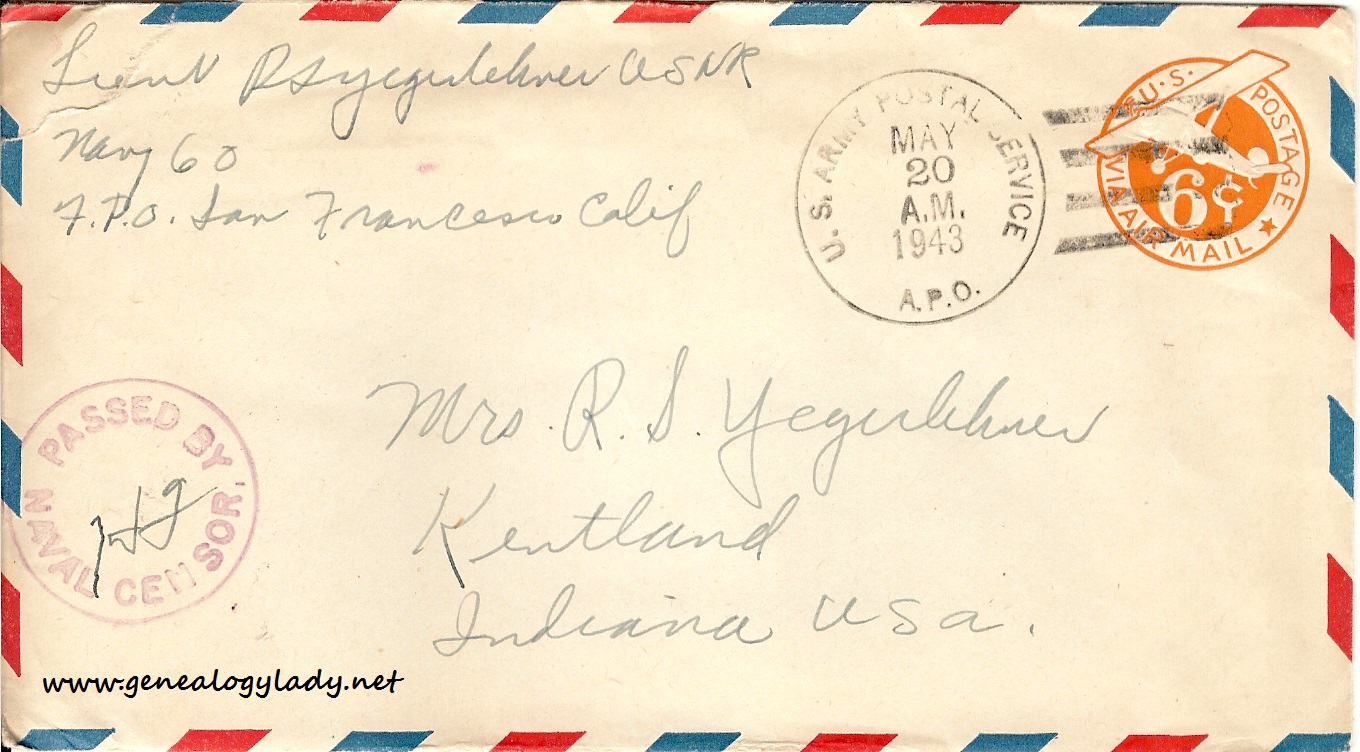 Lieut RSYegerlehner USNR
Navy 60
F.P.O. San Francesco Calif
U.S. ARMY POSTAL SERVICE
MAY
20
A.M.
1943
A.P.O.
U.S. POSTAGE
6¢
VIA AIR MAIL
Mrs. R. S. Yegerlehner
Kentland
Indiana USA.
PASSED BY
NAVAL CENSOR
www.genealogylady.net